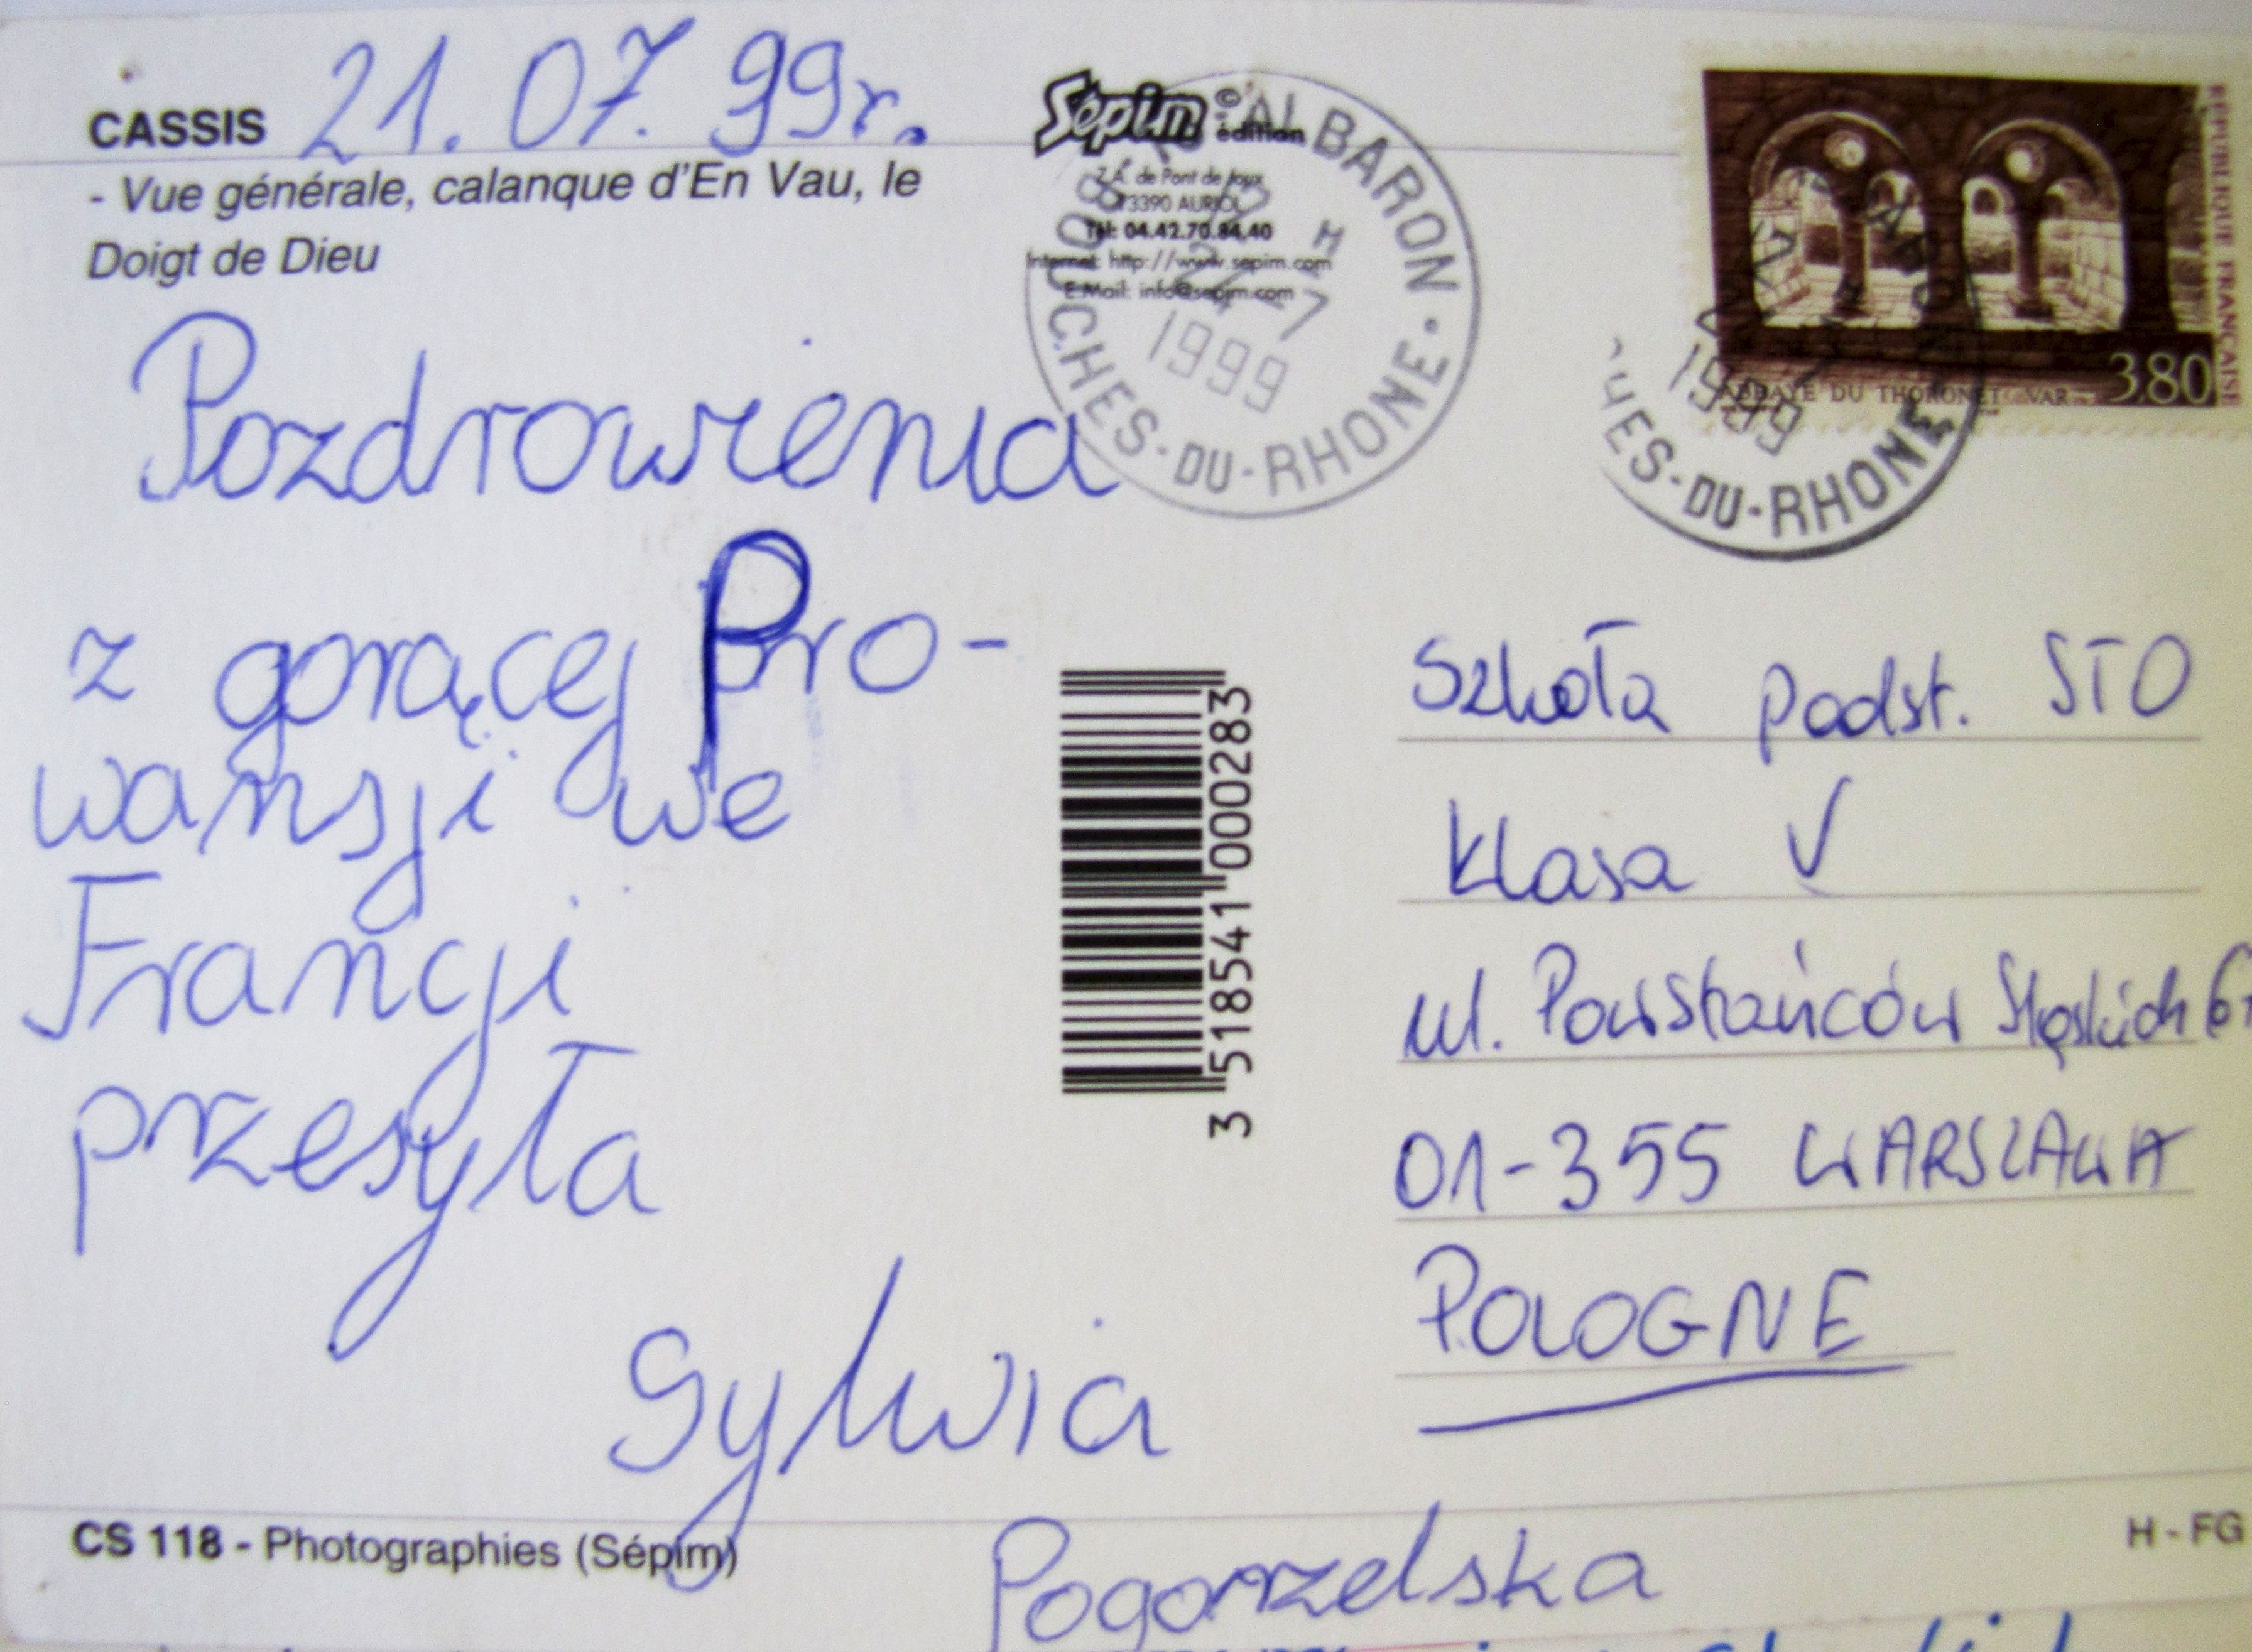 CASSIS 21.07.99r.
- Vue générale, calanque d'En Vau, le
Doigt de Dieu
Pozdrowienia
z gorącej Pro-
wansji we
Francji
przesyła
Sylwia
Pogorzelska
CS 118 - Photographies (Sépim)
Sépim © édition
Z.A. de Pont de Joux
13390 AURIOL
Tél: 04.42.70.84.40
Internet: http://www.sepim.com
E.Mail: info@sepim.com
ALBARON
BOUCHES-DU-RHONE
H
1999
3 518541 000283
RÉPUBLIQUE FRANÇAISE
3.80
ABBAYE DU THORONET VAR
1999
HES-DU-RHONE
Szkoła podst. STO
Klasa V
ul. Powstańców Śląskich
01-355 WARSZAWA
POLOGNE
H - FG